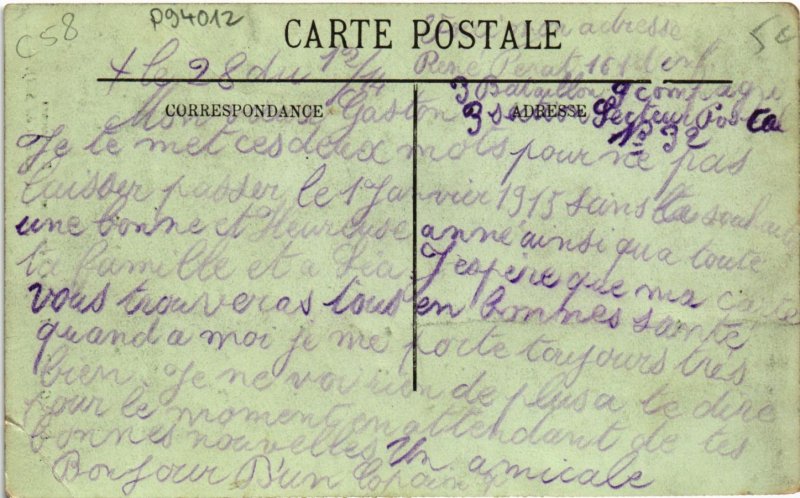 C58
P94012
5c
CARTE POSTALE
CORRESPONDANCE
ADRESSE
mon adresse
René Perat 161 d inf
3 Bataillon 9 compagnie
3 section Secteur Postal
N° 32
+ le 28 du 12/14
Mon vieux Gaston
Je te met ces deux mots pour ne pas
laisser passer le 1 Janvier 1915 sans te souhaiter
une bonne et Heureuse anné ainsi qu a toute
ta famille et a Léa J'espère que ma carte
vous trouveras tous en bonnes santé
quand a moi je me porte toujours très
bien. Je ne voi rien de plus a te dire
pour le moment en attendant de tes
bonnes nouvelles Un amicale
Bonjour D'un Copain